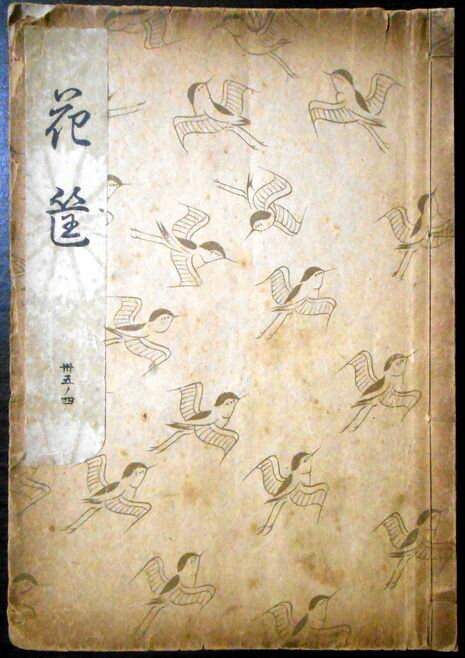 花筐
卅五ノ四